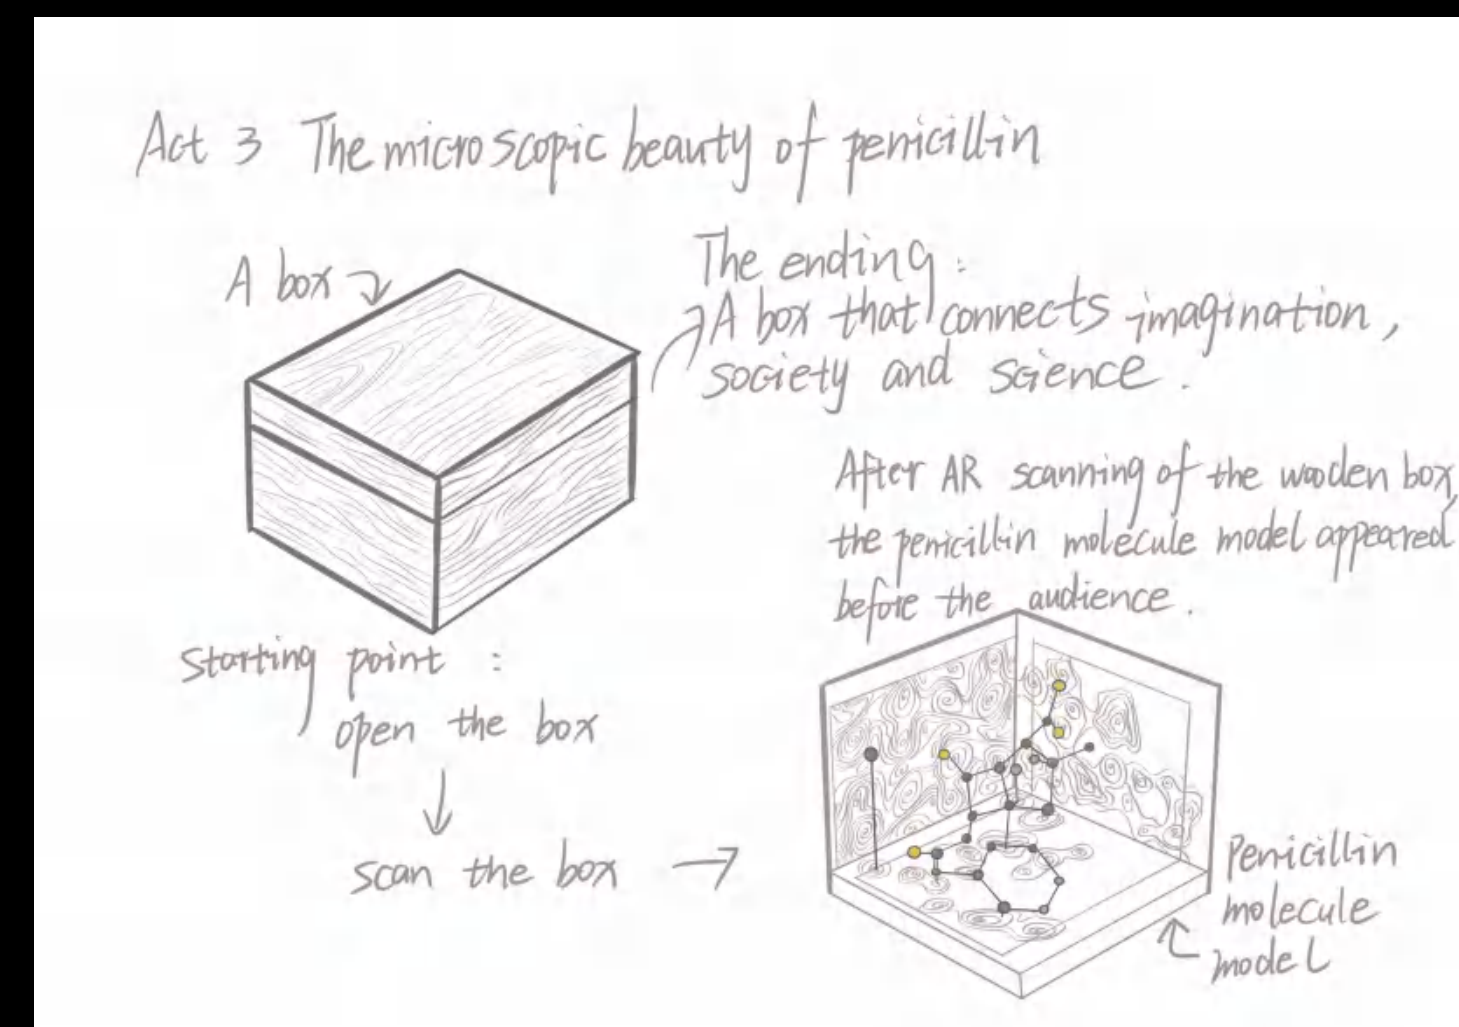 Act 3 The microscopic beauty of penicillin
A box
The ending:
A box that connects imagination,
society and science.
After AR scanning of the wooden box,
the penicillin molecule model appeared
before the audience.
starting point:
open the box
scan the box
Penicillin
molecule
model